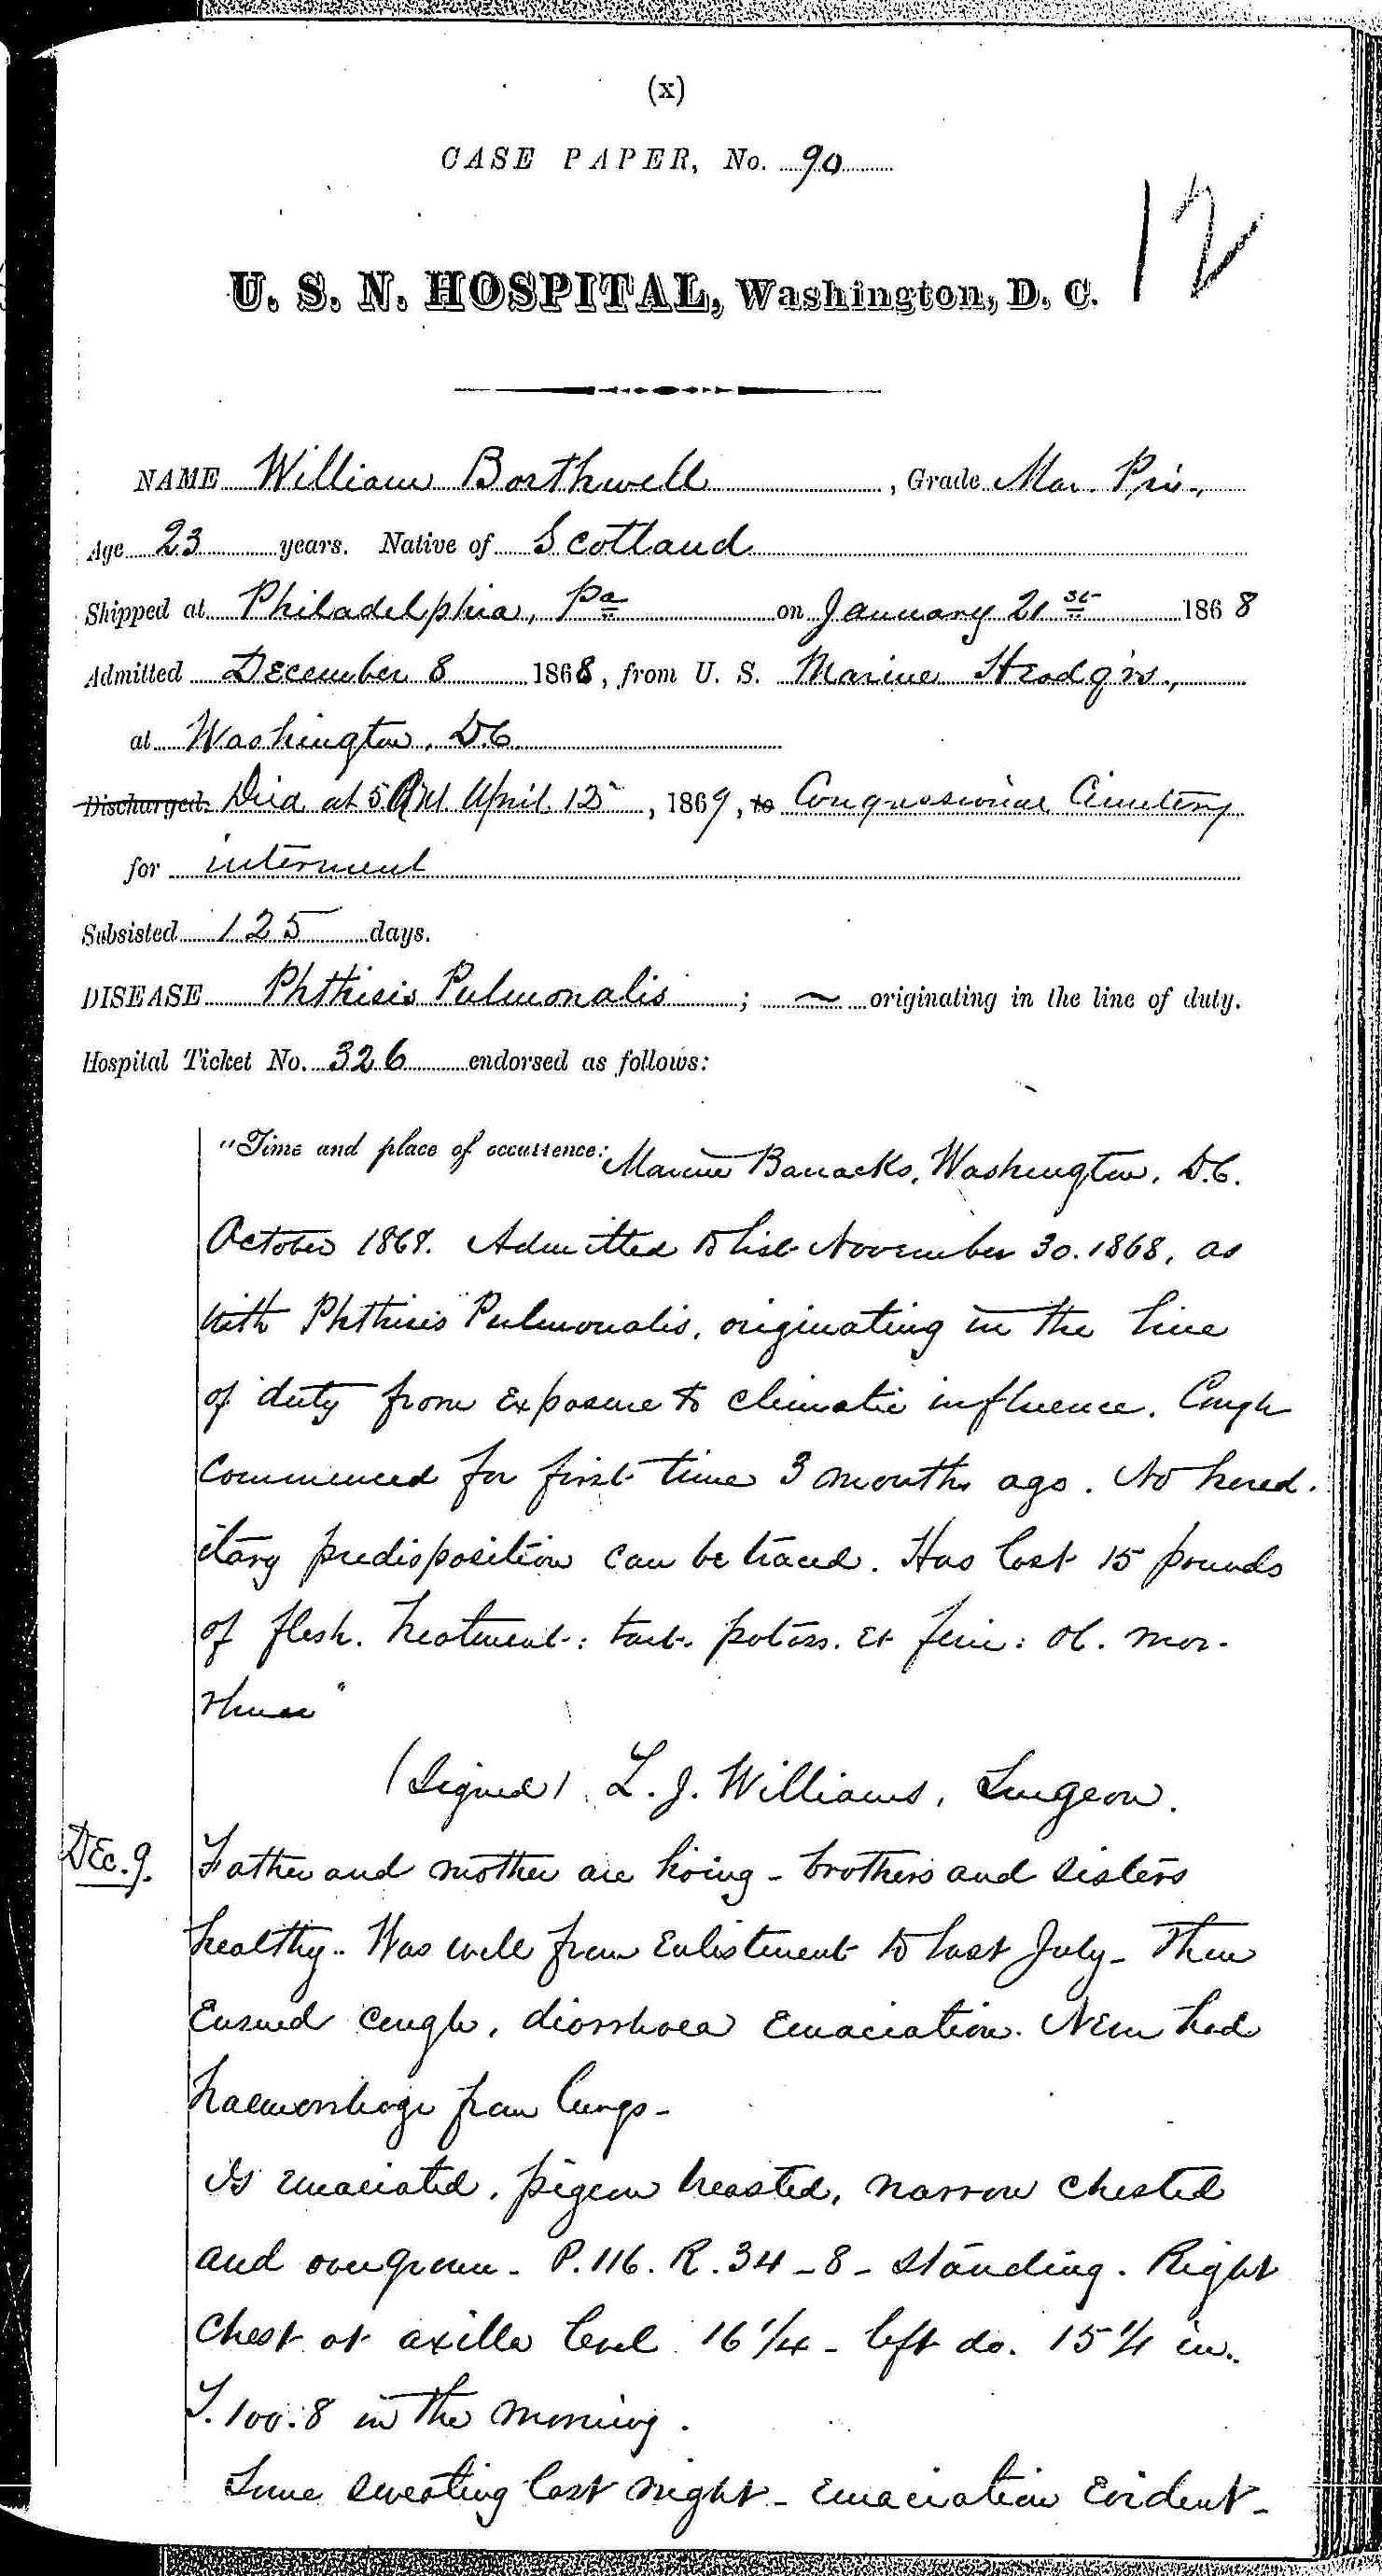 (x)
CASE PAPER, No. 90
12
U. S. N. HOSPITAL, Washington, D. C.
NAME William Borthwell, Grade Mar. Priv.,
Age 23 years. Native of Scotland
Shipped at Philadelphia, Pa on January 21st 1868
Admitted December 8 1868, from U. S. Marine Headqrs.,
at Washington, D.C.
Discharged. Died at 5 P.M. April 12, 1869, to Congressional Cemetery
for interment
Subsisted 125 days.
DISEASE Phthisis Pulmonalis; ~ originating in the line of duty.
Hospital Ticket No. 326 endorsed as follows:
"Time and place of occurrence: Marine Barracks, Washington, D.C.
October 1868. Admitted to list November 30. 1868, as
with Phthisis Pulmonalis, originating in the line
of duty from Exposure to climatic influence. Cough
Commenced for first time 3 months ago. No hered-
itary predisposition can be traced. Has lost 15 pounds
of flesh. Treatment: tart. potass. et ferri: Ol. mor-
rhuae"
(Signed) L. J. Williams, Surgeon.
Dec. 9. Father and mother are living - brothers and sisters
healthy. Was well from Enlistment to last July - Then
Ensued cough, diorrhoea Emaciation. Never had
haemorrhage from lungs -
Is emaciated, pigeon breasted, narrow chested
and overgrown - P. 116. R. 34 - 8 - standing. Right
Chest at axilla level 16 1/4 - left do. 15 1/4 in.
T. 100.8 in the morning.
Some sweating last night - Emaciation Evident -